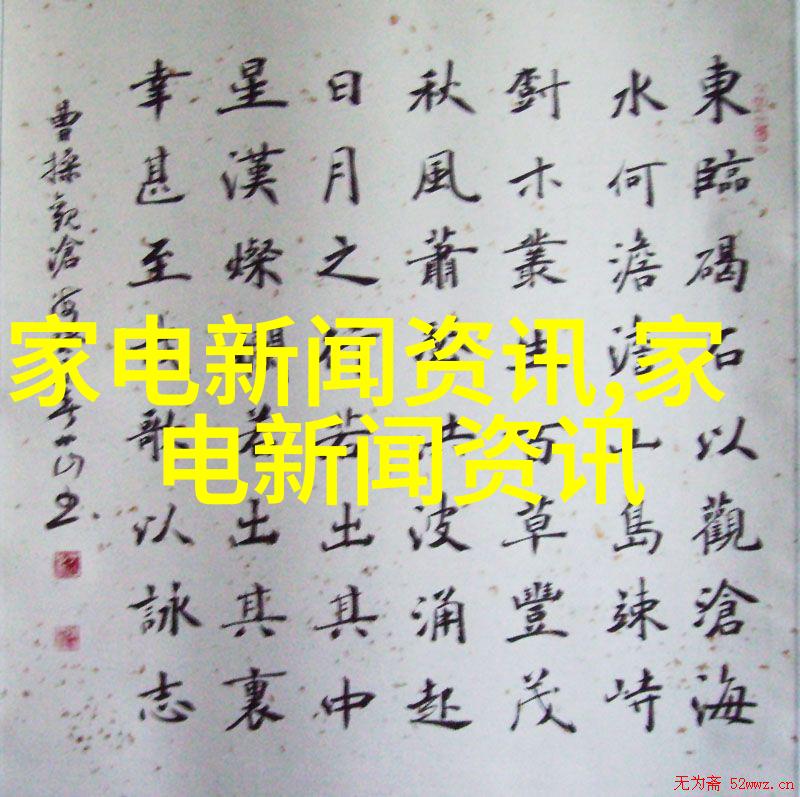 東臨碣石以觀滄海
水何澹澹山島竦峙
樹木叢生百草豐茂
秋風蕭瑟洪波涌起
日月之行若出其中
星漢燦爛若出其裏
幸甚至哉歌以詠志
曹操觀滄海
家电新闻资讯,家
电新闻资讯
无为斋 52wwz.cn